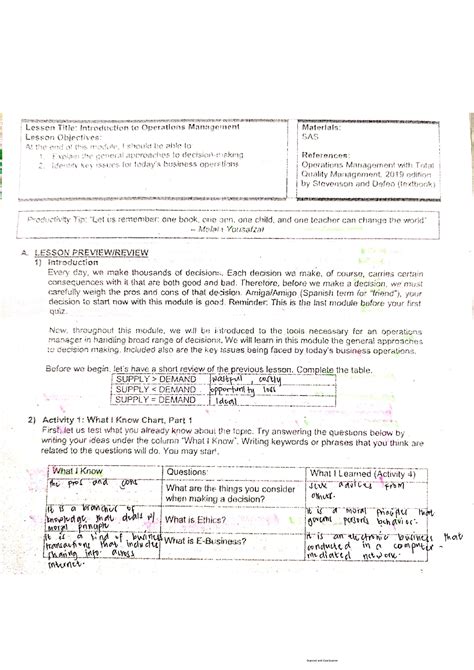 Lesson Title: Introduction to Operations Management
Lesson Objectives:
At the end of this module, I should be able to
1. Explain the general approaches to decision-making
2. Identify key issues for today's business operations
Materials:
SAS
References:
Operations Management with Total
Quality Management, 2019 edition
by Stevenson and Defeo (textbook)
Productivity Tip: "Let us remember: one book, one pen, one child, and one teacher can change the world"
– Malala Yousafzai
A. LESSON PREVIEW/REVIEW
1) Introduction
Every day, we make thousands of decisions. Each decision we make, of course, carries certain
consequences with it that are both good and bad. Therefore, before we make a decision, we must
carefully weigh the pros and cons of that decision. Amiga/Amigo (Spanish term for "friend"), your
decision to start now with this module is good. Reminder: This is the last module before your first
quiz.
Now, throughout this module, we will be introduced to the tools necessary for an operations
manager in handling broad range of decisions. We will learn in this module the general approaches
to decision making. Included also are the key issues being faced by today's business operations.
Before we begin, let's have a short review of the previous lesson. Complete the table.
SUPPLY > DEMAND wasteful, costly
SUPPLY < DEMAND opportunity loss
SUPPLY = DEMAND Ideal
2) Activity 1: What I Know Chart, Part 1
First let us test what you already know about the topic. Try answering the questions below by
writing your ideas under the column "What I Know". Writing keywords or phrases that you think are
related to the questions will do. You may start.
What I Know Questions: What I Learned (Activity 4)
the pros and cons What are the things you consider when making a decision? advices from others.
It is a branches of knowledge that deals w/ moral principle What is Ethics? It is a moral principle that govern person's behavior.
It is a kind of business transactions that includes sharing info across internet. What is E-Business? It is an electronic business that conducted in a computer-mediated network.